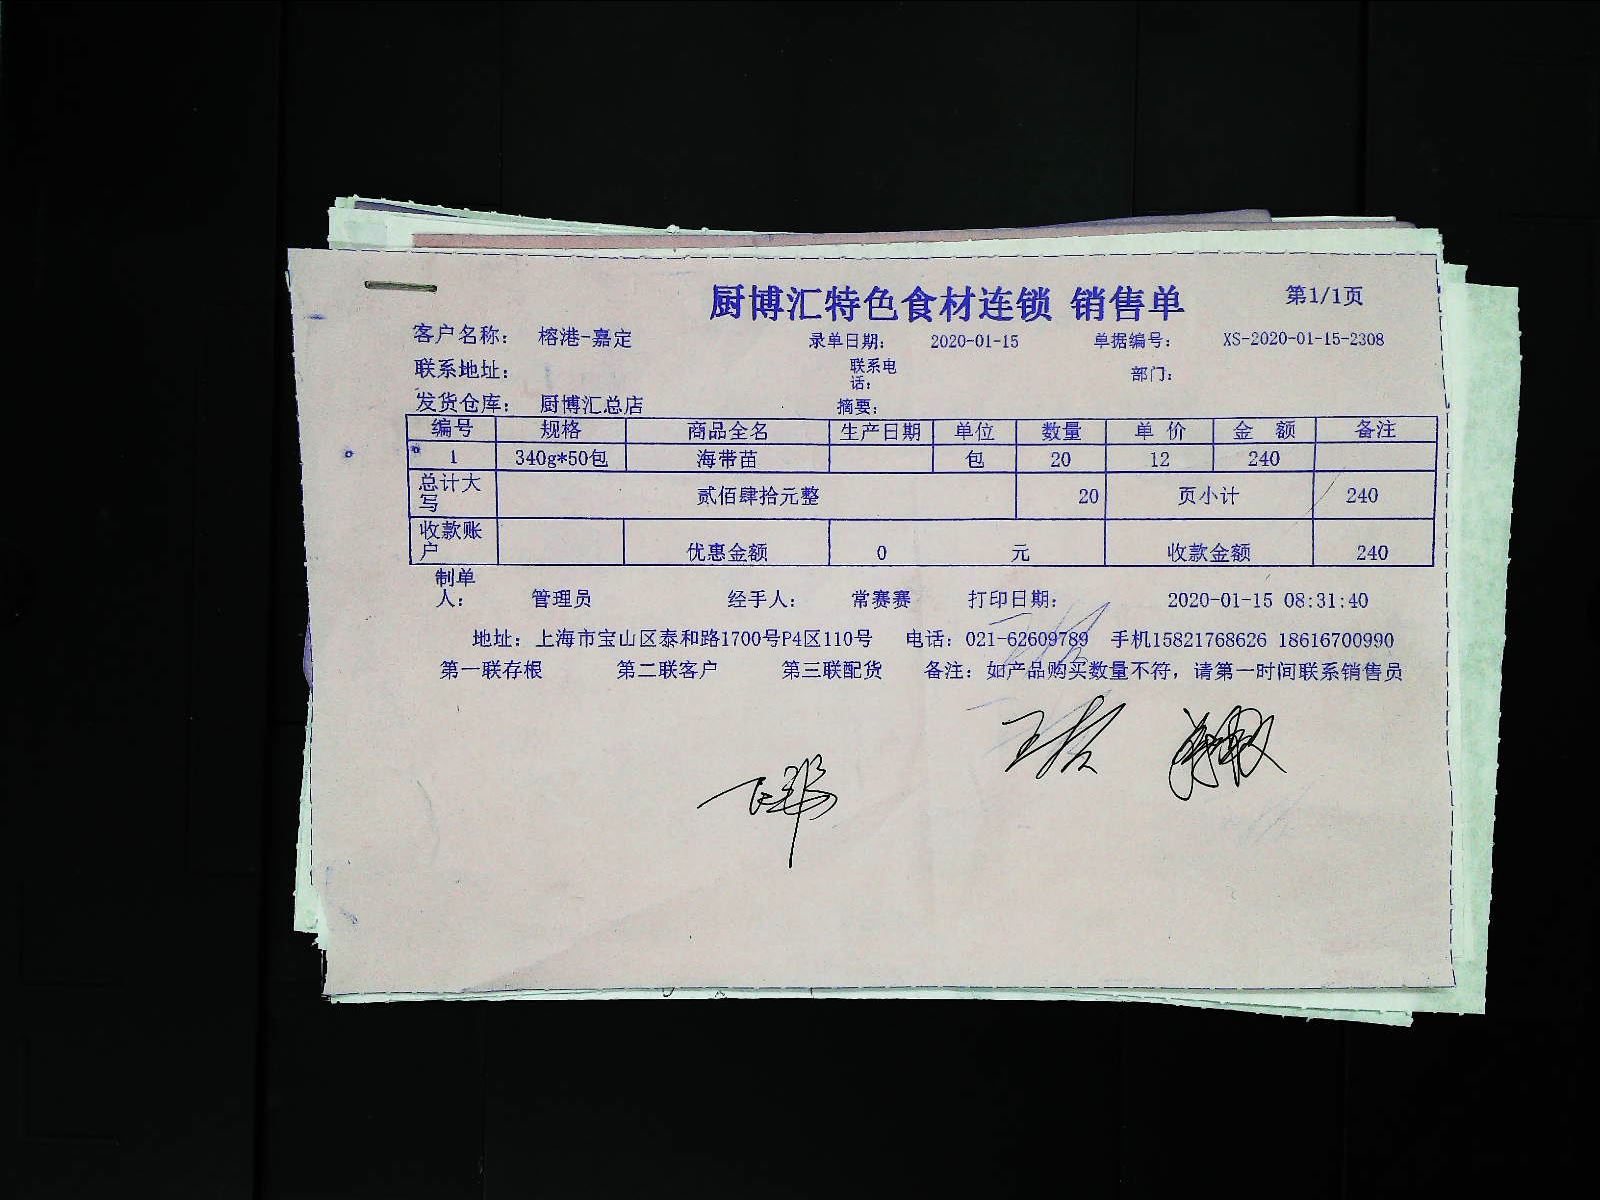 厨博汇特色食材连锁 销售单 第1/1页
客户名称： 榕港-嘉定 录单日期： 2020-01-15 单据编号： XS-2020-01-15-2308
联系地址： 联系电话： 部门：
发货仓库： 厨博汇总店 摘要：
编号 规格 商品全名 生产日期 单位 数量 单 价 金 额 备注
1 340g*50包 海带苗 包 20 12 240
总计大写 贰佰肆拾元整 20 页小计 240
收款账户 优惠金额 0 元 收款金额 240
制单人： 管理员 经手人： 常赛赛 打印日期： 2020-01-15 08:31:40
地址：上海市宝山区泰和路1700号P4区110号 电话：021-62609789 手机15821768626 18616700990
第一联存根 第二联客户 第三联配货 备注：如产品购买数量不符，请第一时间联系销售员